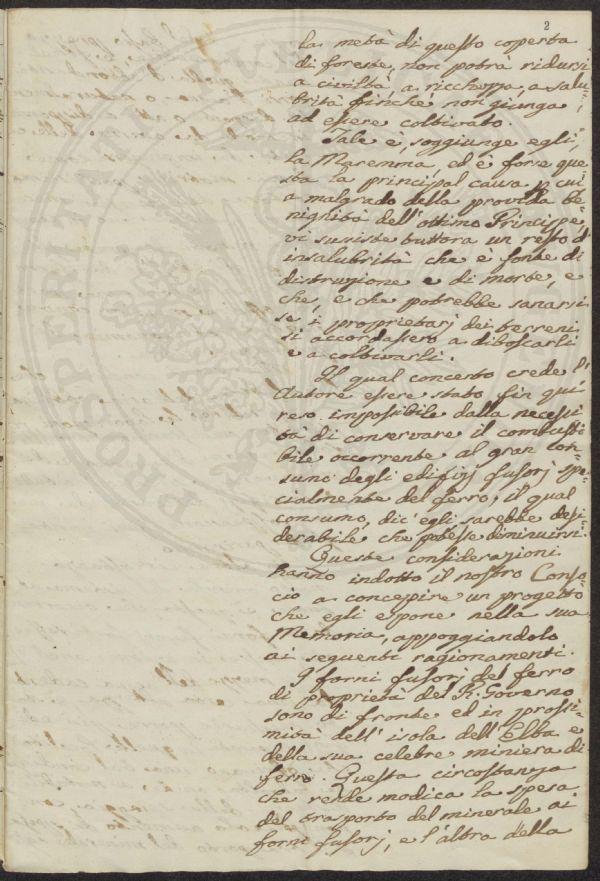 2
la metà di questo coperta
di foreste, non potrà ridursi
a civiltà, a ricchezza, a salu-
brità finchè non giunga
ad essere coltivato.
Tale è, soggiunge egli,
la Maremma, ed è forse que-
sta la principal causa, p. cui
a malgrado della provida be-
nignità dell'ottimo Principe,
vi sussiste tuttora un resto d'
insalubrità che è fonte di
distruzione e di morte, e
che, e che potrebbe sanarsi
se i proprietarj dei terreni
si accordassero a diboscarli
e a coltivarli.
Il qual concerto crede l'
Autore essere stato fin qui
reso impossibile dalla necessi-
tà di conservare il combusti-
bile occorrente al gran con-
sumo degli edifizj fusorj spe-
cialmente del ferro, il qual
consumo, dic'egli sarebbe desi-
derabile che potesse diminuirsi.
Queste considerazioni
hanno indotto il nostro Conso-
cio a concepire un progetto
che egli espone nella sua
Memoria, appoggiandolo
ai seguenti ragionamenti.
I forni fusorj del ferro
di proprietà del R. Governo
sono di fronte ed in prossi-
mità dell'isola dell'Elba e
della sua celebre miniera di
ferro. Questa circostanza
che rende modica la spesa
del trasporto del minerale ai
forni fusorj, e l'altra della
PROSPERITATI